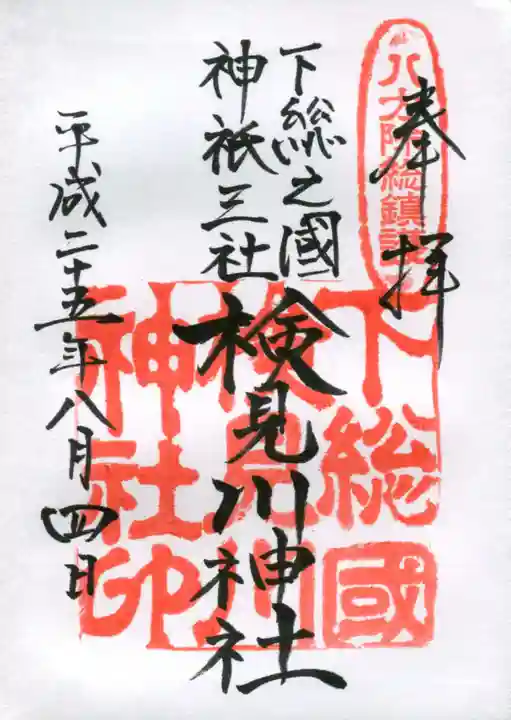 奉拝
八方除総鎮護
下総之國
神祇三社
検見川神社
下総國
検見川
神社印
平成二十五年八月四日